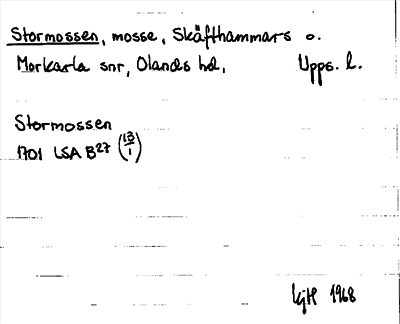 Stormossen, mosse, Skäfthammars o.
Morkarla snr, Olands hd, Upps. l.
Stormossen
1701 LSA B27 (13/1)
KjH 1968